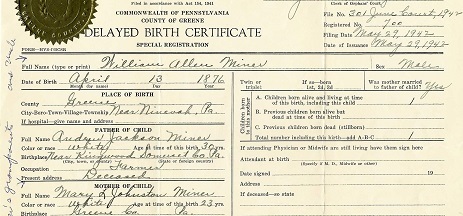 Filed in accordance with Act 194, 1941
COMMONWEALTH OF PENNSYLVANIA
COUNTY OF GREENE
DELAYED BIRTH CERTIFICATE
SPECIAL REGISTRATION
Clerk of Orphans' Court
File No. 301 June Court, 1942
Registered No. 700
Filing Date May 29, 1942
Date of Issuance May 29, 1942
Full Name (type or print) William Allen Miner Sex Male
Date of Birth April 13 1876
Month (by name) Day Year
Twin or triplet? If so—born 1st, 2d or 3d Was mother married to father of child? Yes
PLACE OF BIRTH
County Greene
City-Boro-Town-Village-Township Near Ninevah, Pa.
If hospital—give name and address
Children born to this mother
A. Children born alive and living at time of this birth, including this child 1
B. Previous children born alive but dead at time of this birth
C. Previous children born dead (stillborn)
Total number including this birth—add A-B-C 1
FATHER OF CHILD
Full Name Andrew Jackson Miner
Color or race White Age at time of this birth 30 yrs.
Birthplace Near Kingwood Somerset Co. Pa.
Occupation Farmer
Present address Deceased
If attending Physician or Midwife are still living have them sign here
Attendant at birth
(Specify if M. D., Midwife or other)
Date signed 19
Address
If deceased—so state
MOTHER OF CHILD
Full Name Mary L Johnston Miner
Color or race White Age at time of this birth 23 yrs.
Birthplace Greene Co. Pa.